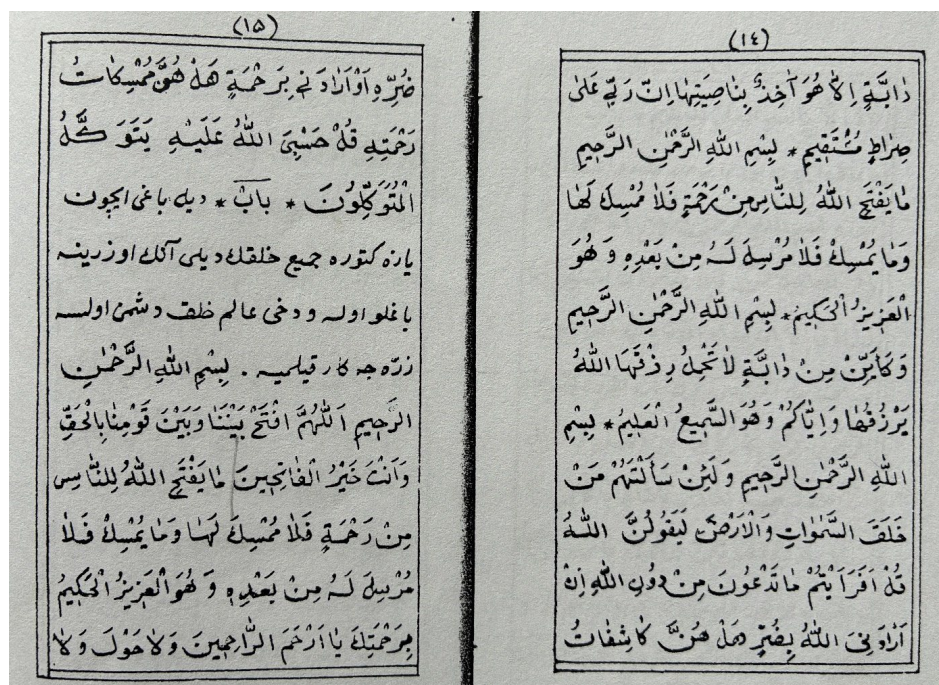 (١٤)
دٰابَّةٍ اِلاّٰ هُوَ آٰخِذٌ بِنٰاصِيَتِهٰا اِنَّ رَبّٖي عَلىٰ
صِرٰاطٍ مُسْتَقٖيمٍ * بِسْمِ اللّٰهِ الرَّحْمٰنِ الرَّحٖيمِ
مٰا يَفْتَحِ اللّٰهُ لِلنّٰاسِ مِنْ رَحْمَةٍ فَلاٰ مُمْسِكَ لَهٰا
وَمٰا يُمْسِكْ فَلاٰ مُرْسِلَ لَهُ مِنْ بَعْدِهٖ وَ هُوَ
الْعَزٖيزُ الْحَكٖيمُ * بِسْمِ اللّٰهِ الرَّحْمٰنِ الرَّحٖيمِ
وَ كَاَيِّنْ مِنْ دٰابَّةٍ لاٰ تَحْمِلُ رِزْقَهَا اللّٰهُ
يَرْزُقُهٰا وَ اِيّٰاكُمْ وَ هُوَ السَّمٖيعُ الْعَلٖيمُ * بِسْمِ
اللّٰهِ الرَّحْمٰنِ الرَّحٖيمِ وَ لَئِنْ سَاَلْتَهُمْ مَنْ
خَلَقَ السَّمٰوٰاتِ وَ الْاَرْضَ لَيَقُولُنَّ اللّٰهُ
قُلْ اَفَرَاَيْتُمْ مٰا تَدْعُونَ مِنْ دُونِ اللّٰهِ اِنْ
اَرٰادَنِىَ اللّٰهُ بِضُرٍّ هَلْ هُنَّ كٰاشِفٰاتُ
(١٥)
ضُرِّهِ اَوْ اَرٰادَنٖي بِرَحْمَةٍ هَلْ هُنَّ مُمْسِكٰاتُ
رَحْمَتِهٖ قُلْ حَسْبِىَ اللّٰهُ عَلَيْهِ يَتَوَكَّلُ
الْمُتَوَكِّلُونَ * بابْ * ديل باغى ايچون
يازه كتوره جميع خلقك ديلى آنك اوزرينه
باغلو اوله و دخى عالم خلق دشمن اولسه
زرّه جه كار قيلميه . بِسْمِ اللّٰهِ الرَّحْمٰنِ
الرَّحٖيمِ اَللّٰهُمَّ افْتَحْ بَيْنَنٰا وَ بَيْنَ قَوْمِنٰا بِالْحَقِّ
وَ اَنْتَ خَيْرُ الْفٰاتِحٖينَ مٰا يَفْتَحِ اللّٰهُ لِلنّٰاسِ
مِنْ رَحْمَةٍ فَلاٰ مُمْسِكَ لَهٰا وَ مٰا يُمْسِكْ فَلاٰ
مُرْسِلَ لَهُ مِنْ بَعْدِهٖ وَ هُوَ الْعَزٖيزُ الْحَكٖيمُ
بِرَحْمَتِكَ يٰا اَرْحَمَ الرّٰاحِمٖينَ وَلاٰ حَوْلَ وَ لاٰ